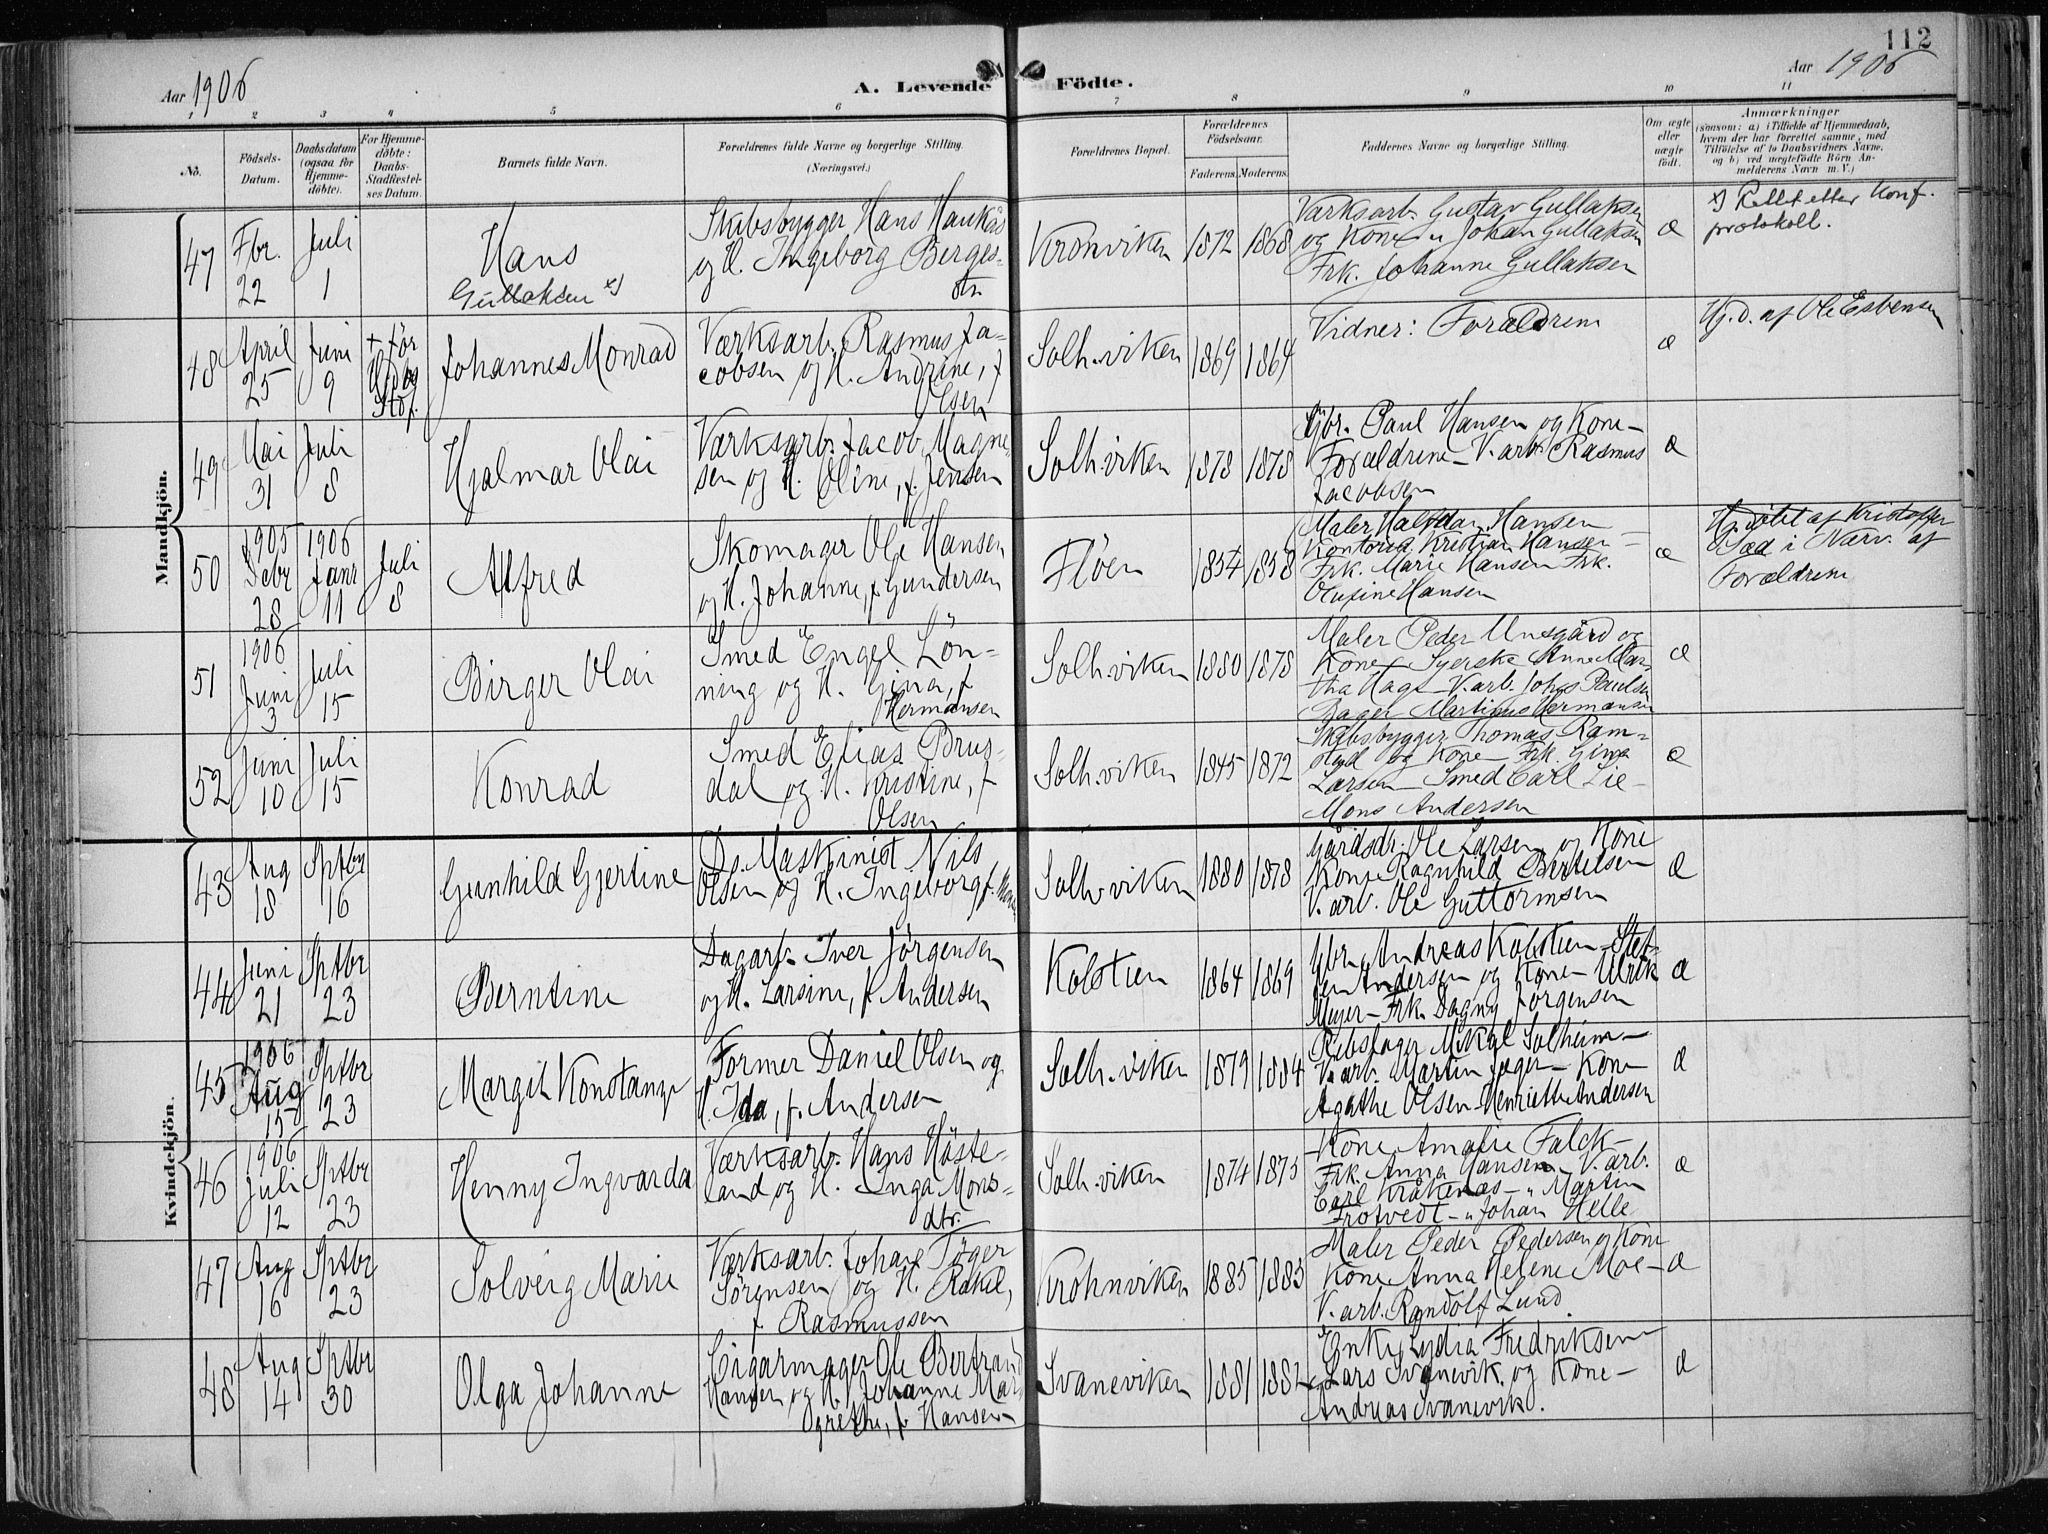 112
Aar 1906
A. Levende Födte.
Aar 1906
1 2 3 4 5 6 7 8 9 10 11
No.
Födsels-Datum.
Daabsdatum (ogsaa for Hjemmedöbte).
For Hjemmedöbte: Daabs-Stadfæstelses Datum.
Barnets fulde Navn.
Forældrenes fulde Navne og borgerlige Stilling. (Næringsvei.)
Forældrenes Bopæl.
Forældrenes Födselsaar.
Faderens. Moderens.
Faddernes Navne og borgerlige Stilling.
Om ægte eller uægte födt.
Anmærkninger
(saasom: a) i Tilfælde af Hjemmedaab, hvem der har forrettet samme, med Tilföielse af to Daabsvidners Navne. og b) ved uægtefödte Börn Anmelderens Navn m. V.)
Mandkjön.
47 Fbr. 22 Juli 1
Hans
Gullaksen x)
Skibsbygger Hans Haukås
og H. Ingeborg Berges-
dtr.
Kronviken 1872 1868
Værksarb. Gustav Gullaksen
og Kone " Johan Gullaksen
Frk. Johanne Gullaksen
æ
x) Rettet etter Konf.
protokoll.
48 April 25 Juni 9
+ før
Stdf.
Johannes Monrad
Værksarb. Rasmus Ja-
cobsen og H. Andrine, f.
Olsen
Solh.viken 1869 1864
Vidner: Forældrene
æ
Hj.d. af Ole Esbensen
49 Mai 31 Juli 8
Hjalmar Olai
Værksarb. Jacob Magne-
sen og H. Oline, f. Jensen
Solh.viken 1878 1878
Gbr. Paul Hansen og Kone -
Forældrene - V. arb. Rasmus
Jacobsen
æ
50 1905 Debr 28 1906 Janr 11 Juli 8
Alfred
Skomager Ole Hansen
og H. Johanne, f. Gundersen
Fløen 1854 1858
Maler Halfdan Hansen -
Kontorist Kristian Hansen -
Frk. Marie Hansen Frk.
Olufine Hansen
æ
Hj.døbt af Kristoffer
i Nærv. af
Forældrene
51 1906 Juni 3 Juli 15
Birger Olai
Smed Engel Lön-
ning og H. Gina, f.
Hermansen
Solh.viken 1880 1878
Maler Peder Unsgård og
Kone - Syerske Anne Mar-
tha Hage - V. arb. Johs Paulsen
Bager Martinus Hermansen
æ
52 Juni 10 Juli 15
Konrad
Smed Elias Brus-
dal og H. Kristine, f.
Olsen
Solh.viken 1845 1872
Skibsbygger Thomas Ram-
stad og Kone - Frk. Gina
Larsen - Smed Carl Lie -
Mons Andersen
æ
Kvindekjön.
43 Aug 18 Sptbr 16
Gunhild Gjertine
Ds. Maskinist Nils
Olsen og H. Ingeborg, f.
Solhviken 1880 1878
Gårdsdr. Ole Larsen og Kone
Kone Ragnhild Bertelsen
V. arb. Ole Guttormsen
æ
44 Juni 21 Sptbr 23
Berntine
Dagarb. Iver Jörgensen
og H. Larsine, f. Andersen
Kolstien 1864 1869
Gbr. Andreas Kolstien - Stef-
fen Andersen og Kone - Ulrik
Meyer - Frk. Dagny Jörgensen
æ
45 1906 Aug 15 Sptbr 23
Margit Konstanze
Former Daniel Olsen og
H. Ida, f. Andersen
Solh.viken 1879 1884
Rebslager Mikal Solheim -
V. arb. Martin Jæger - Kone
Agathe Olsen - Henriette Andersen
æ
46 1906 Juli 12 Sptbr 23
Henny Ingvarda
Værksarb. Hans Höste-
land og H. Inga Mons-
dtr.
Solh.viken 1874 1873
Kone Amalie Falck -
Frk. Anna Hansen - V. arb.
Carl Kråkenæs - " Martin
Trotvedt - " Johan Helle
æ
47 Aug 16 Sptbr 23
Solveig Marie
Værksarb. Johan Töger
Sörensen og H. Rakel,
f. Rasmussen
Krohnviken 1885 1883
Maler Peder Pedersen og Kone
Kone Anna Helene Moe -
V. arb. Randolf Lund.
æ
48 Aug 14 Sptbr 30
Olga Johanne
Cigarmager Ole Bertrand
Hansen og H. Johanne Mar-
grethe, f. Hansen
Svaneviken 1881 1882
Enke Lydia Fredriksen
Lars Svanevik og Kone -
Andreas Svanevik.
æ